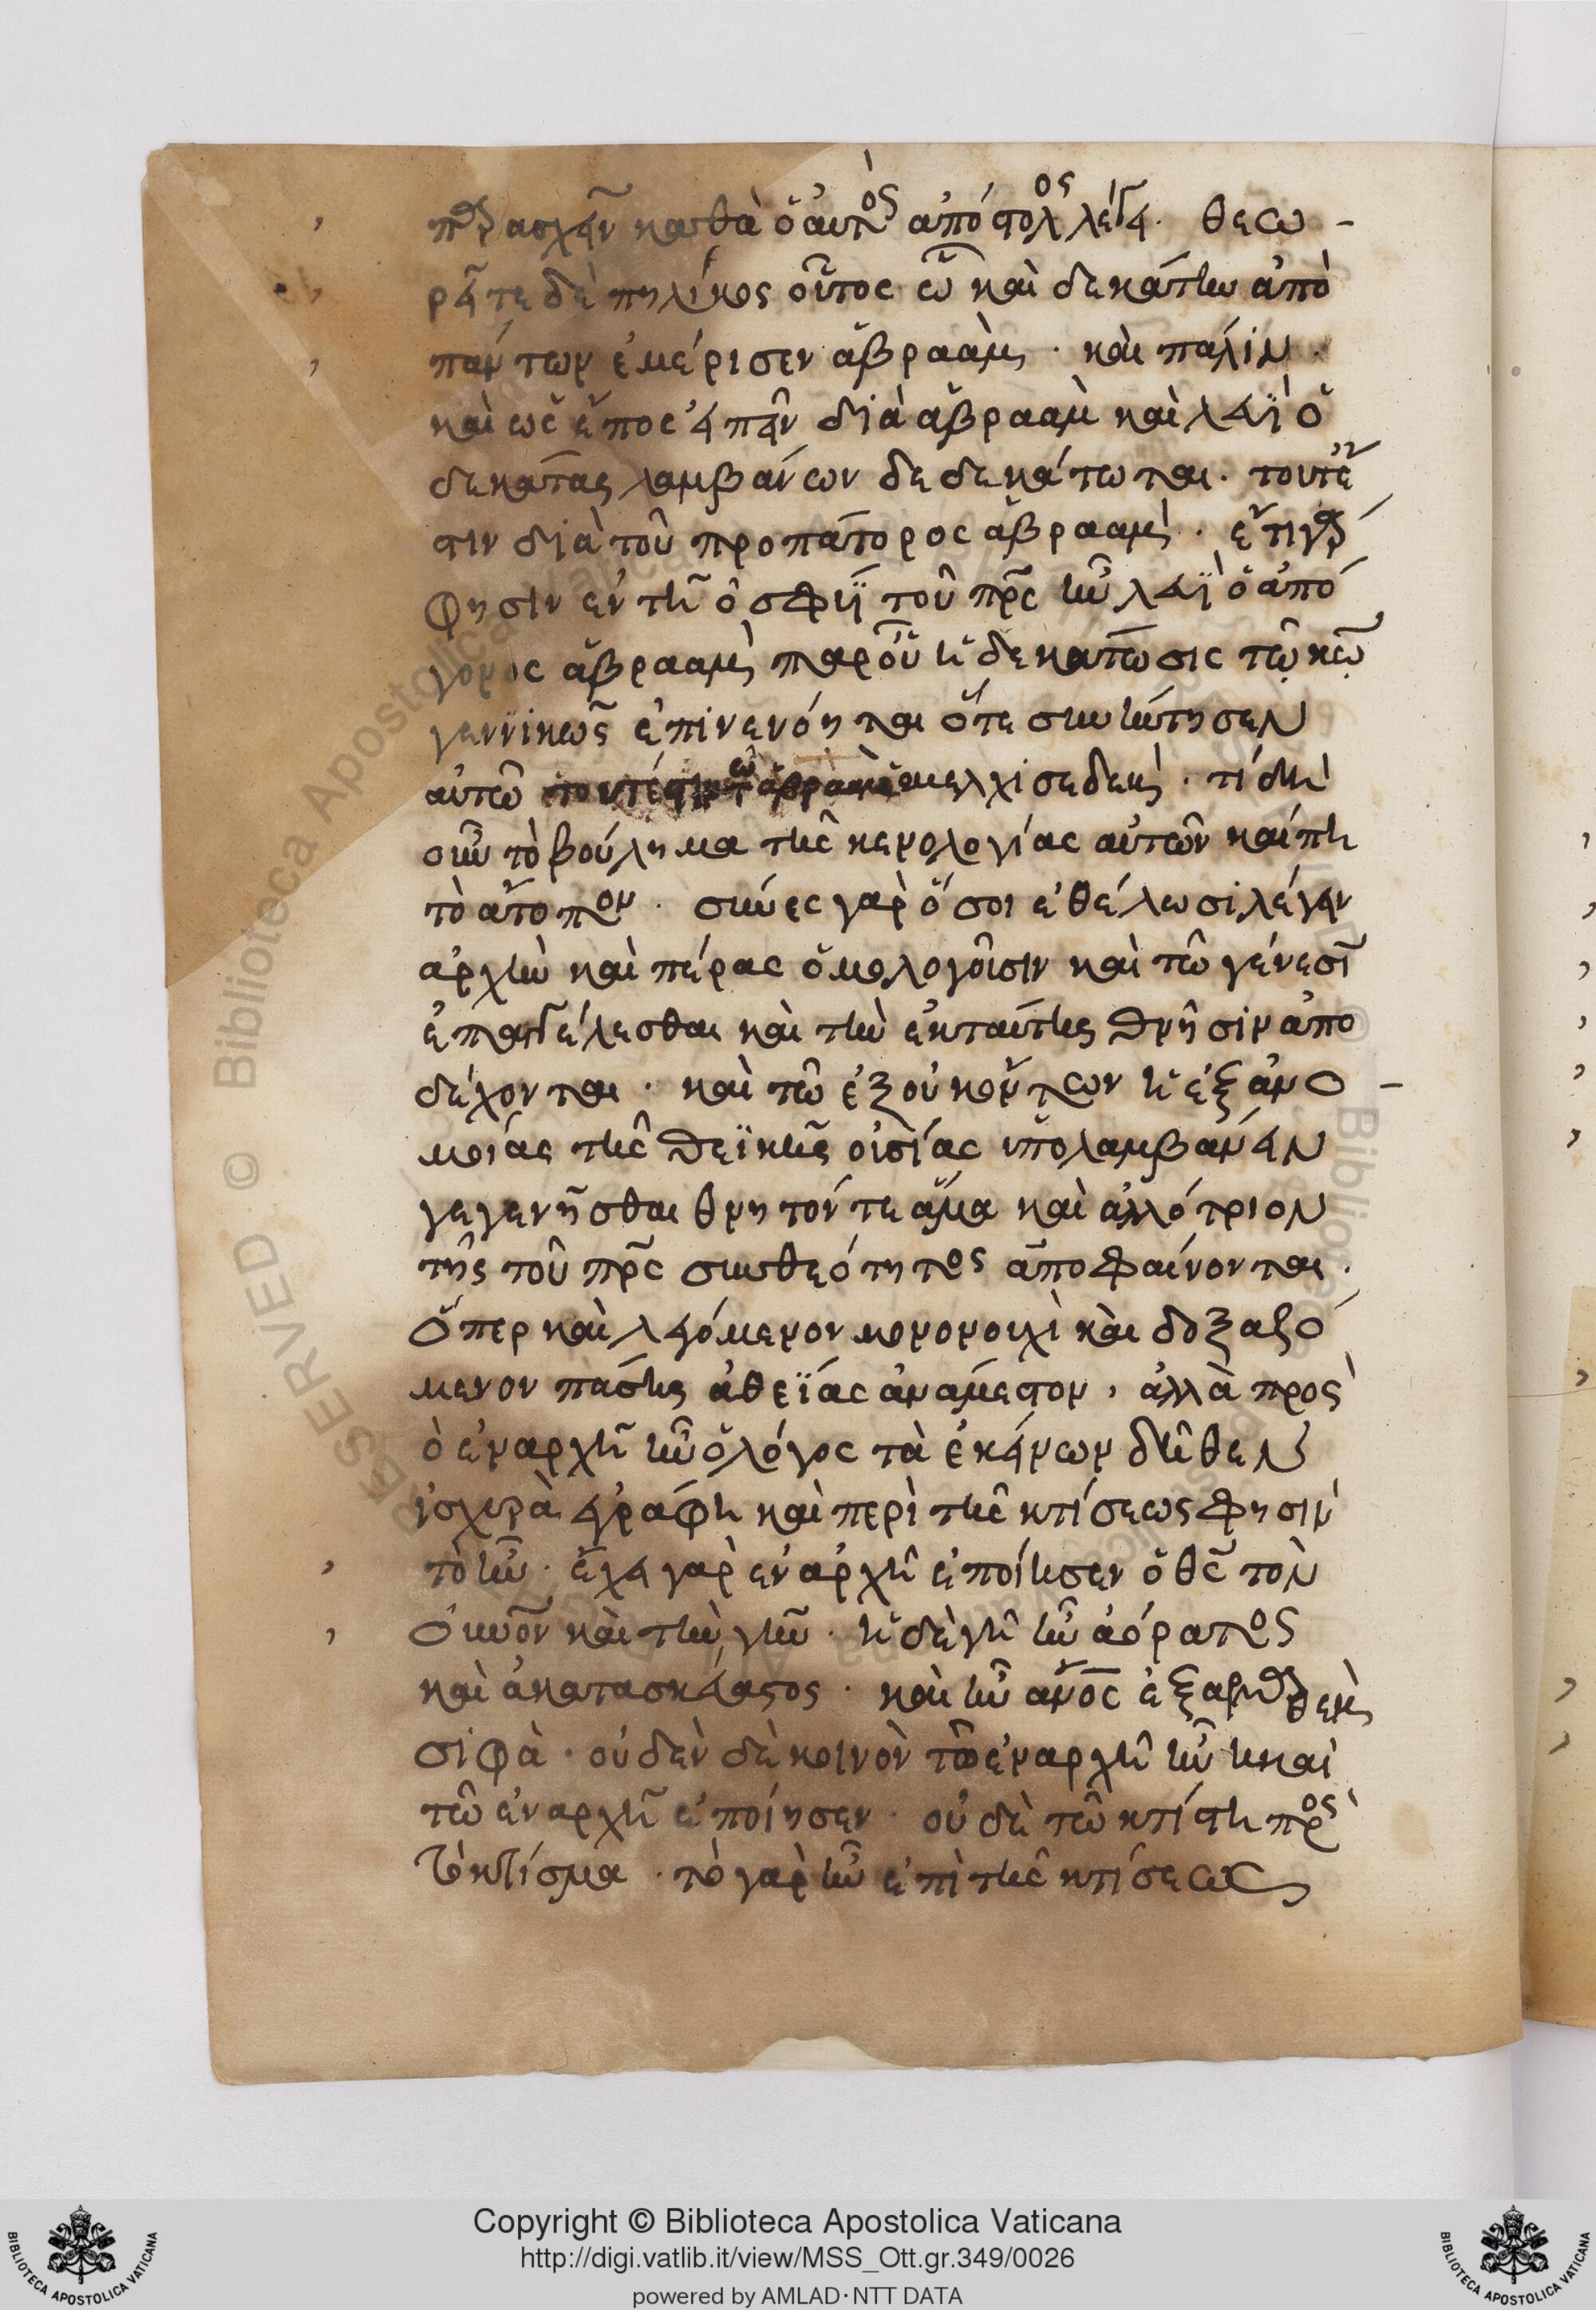 καθὰ ὁ αὐτὸς ἀπόστολος λέγει· θεω-
ρεῖτε δὲ πηλίκος οὗτος ᾧ καὶ δεκάτην ἀπὸ
πάντων ἐμέρισεν ἀβραάμ· καὶ πάλιν·
καὶ ὡς ἔπος εἰπεῖν διὰ ἀβραὰμ καὶ λευῒ ὁ
δεκάτας λαμβάνων δεδεκάτωται· τουτέ
στιν διὰ τοῦ προπάτορος ἀβραάμ· ἔτι γὰρ
φησὶν ἐν τῇ ὀσφύϊ τοῦ πρς ἦν λευῒ ὁ ἀπό
γονος ἀβραὰμ παρ οὗ ἡ δεκάτωσις τῷ
ἐπινενόηται ὅτε συνήντησεν
αὐτῷ μελχισεδέκ· τί δὴ
οὖν τὸ βούλημα τῆς κενολογίας αὐτῶν καὶ πῆ
τὸ ἄτοπον· γὰρ ὅσοι ἐθέλωσι λέγειν
ἀρχὴν καὶ πέρας ὁμολογοῦσιν καὶ τῷ γένεσι
καὶ τὴν ἐκ ταύτης ἀπο
δέχονται· καὶ τῷ ἐξ οὐκ ὄντων ἢ ἐξ ἀνο-
μοίας τῆς θεϊκῆς οὐσίας ὑπολαμβάνειν
γεγενῆσθαι θνητόν τε ἅμα καὶ ἀλλότριον
τῆς τοῦ πρς συνθεότητος ἀποφαίνονται·
ὅπερ καὶ λεγόμενον μονονουχὶ καὶ δοξαζό
μενον πάσης ἀθεΐας ἀνάμεστον, ἀλλὰ πρὸς
ὁ ἐν ἀρχῇ ἦν ὁ λόγος τὰ ἐκείνων δῆθεν
ἰσχυρὰ γράφη καὶ περὶ τῆς κτίσεως φησὶν
τὸ ἦν· ἔχει γὰρ ἐν ἀρχῇ ἐποίησεν ὁ θς τὸν
οὐνον καὶ τὴν γῆν· ἡ δὲ γῆ ἦν ἀόρατος
καὶ ἀκατασκεύαστος· καὶ ἦν ἄνος ἐξ ἀρμαθαὶμ
σιφά· οὐδὲν δὲ κοινὸν τῷ ἐν ἀρχῇ ἦν καὶ
τῷ ἐν ἀρχῇ ἐποίησεν· οὐδὲ τῷ κτίστη πρὸς
τὸ κτίσμα· τὸ γὰρ ἦν ἐπὶ τῆς κτίσεως
Copyright © Biblioteca Apostolica Vaticana
http://digi.vatlib.it/view/MSS_Ott.gr.349/0026
powered by AMLAD·NTT DATA
BIBLIOTECA APOSTOLICA VATICANA
BIBLIOTECA APOSTOLICA VATICANA